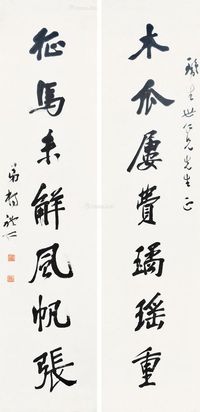 木瓜屢費璚瑤重
世仁兄先生正
征馬未鮮風帆張
弟